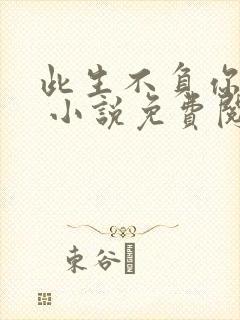 此生不負你
小說免費閱
東谷